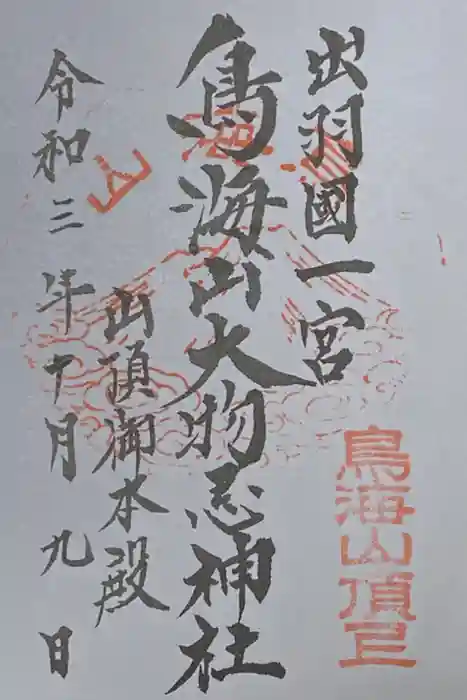 出羽國一宮
鳥海山頂
鳥海山大物忌神社
山頂御本殿
令和三年十月九日